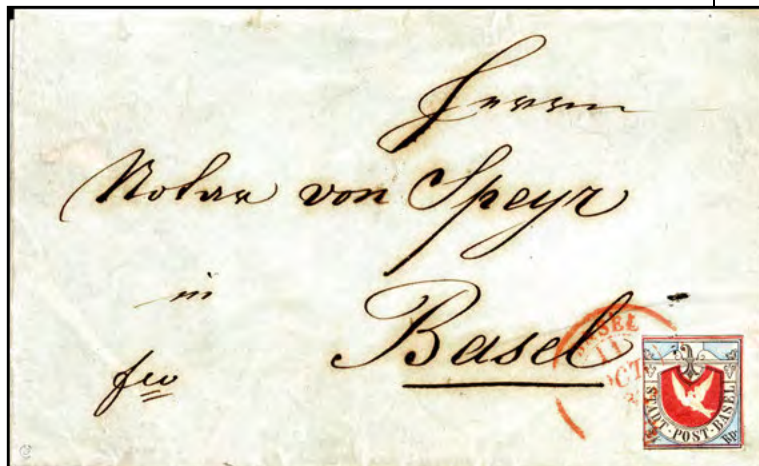 Herrn
Notar von Speyr
in
Basel
fco
BASEL
11
OCT
STADT-POST-BASEL
Rp.